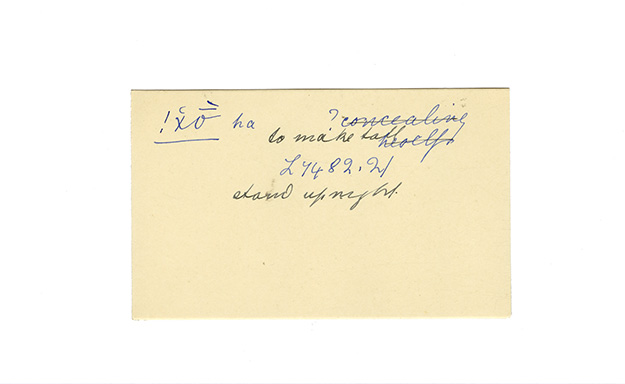 !χō ha ? concealing
to make tall herself
L 7482.21
stand upright.